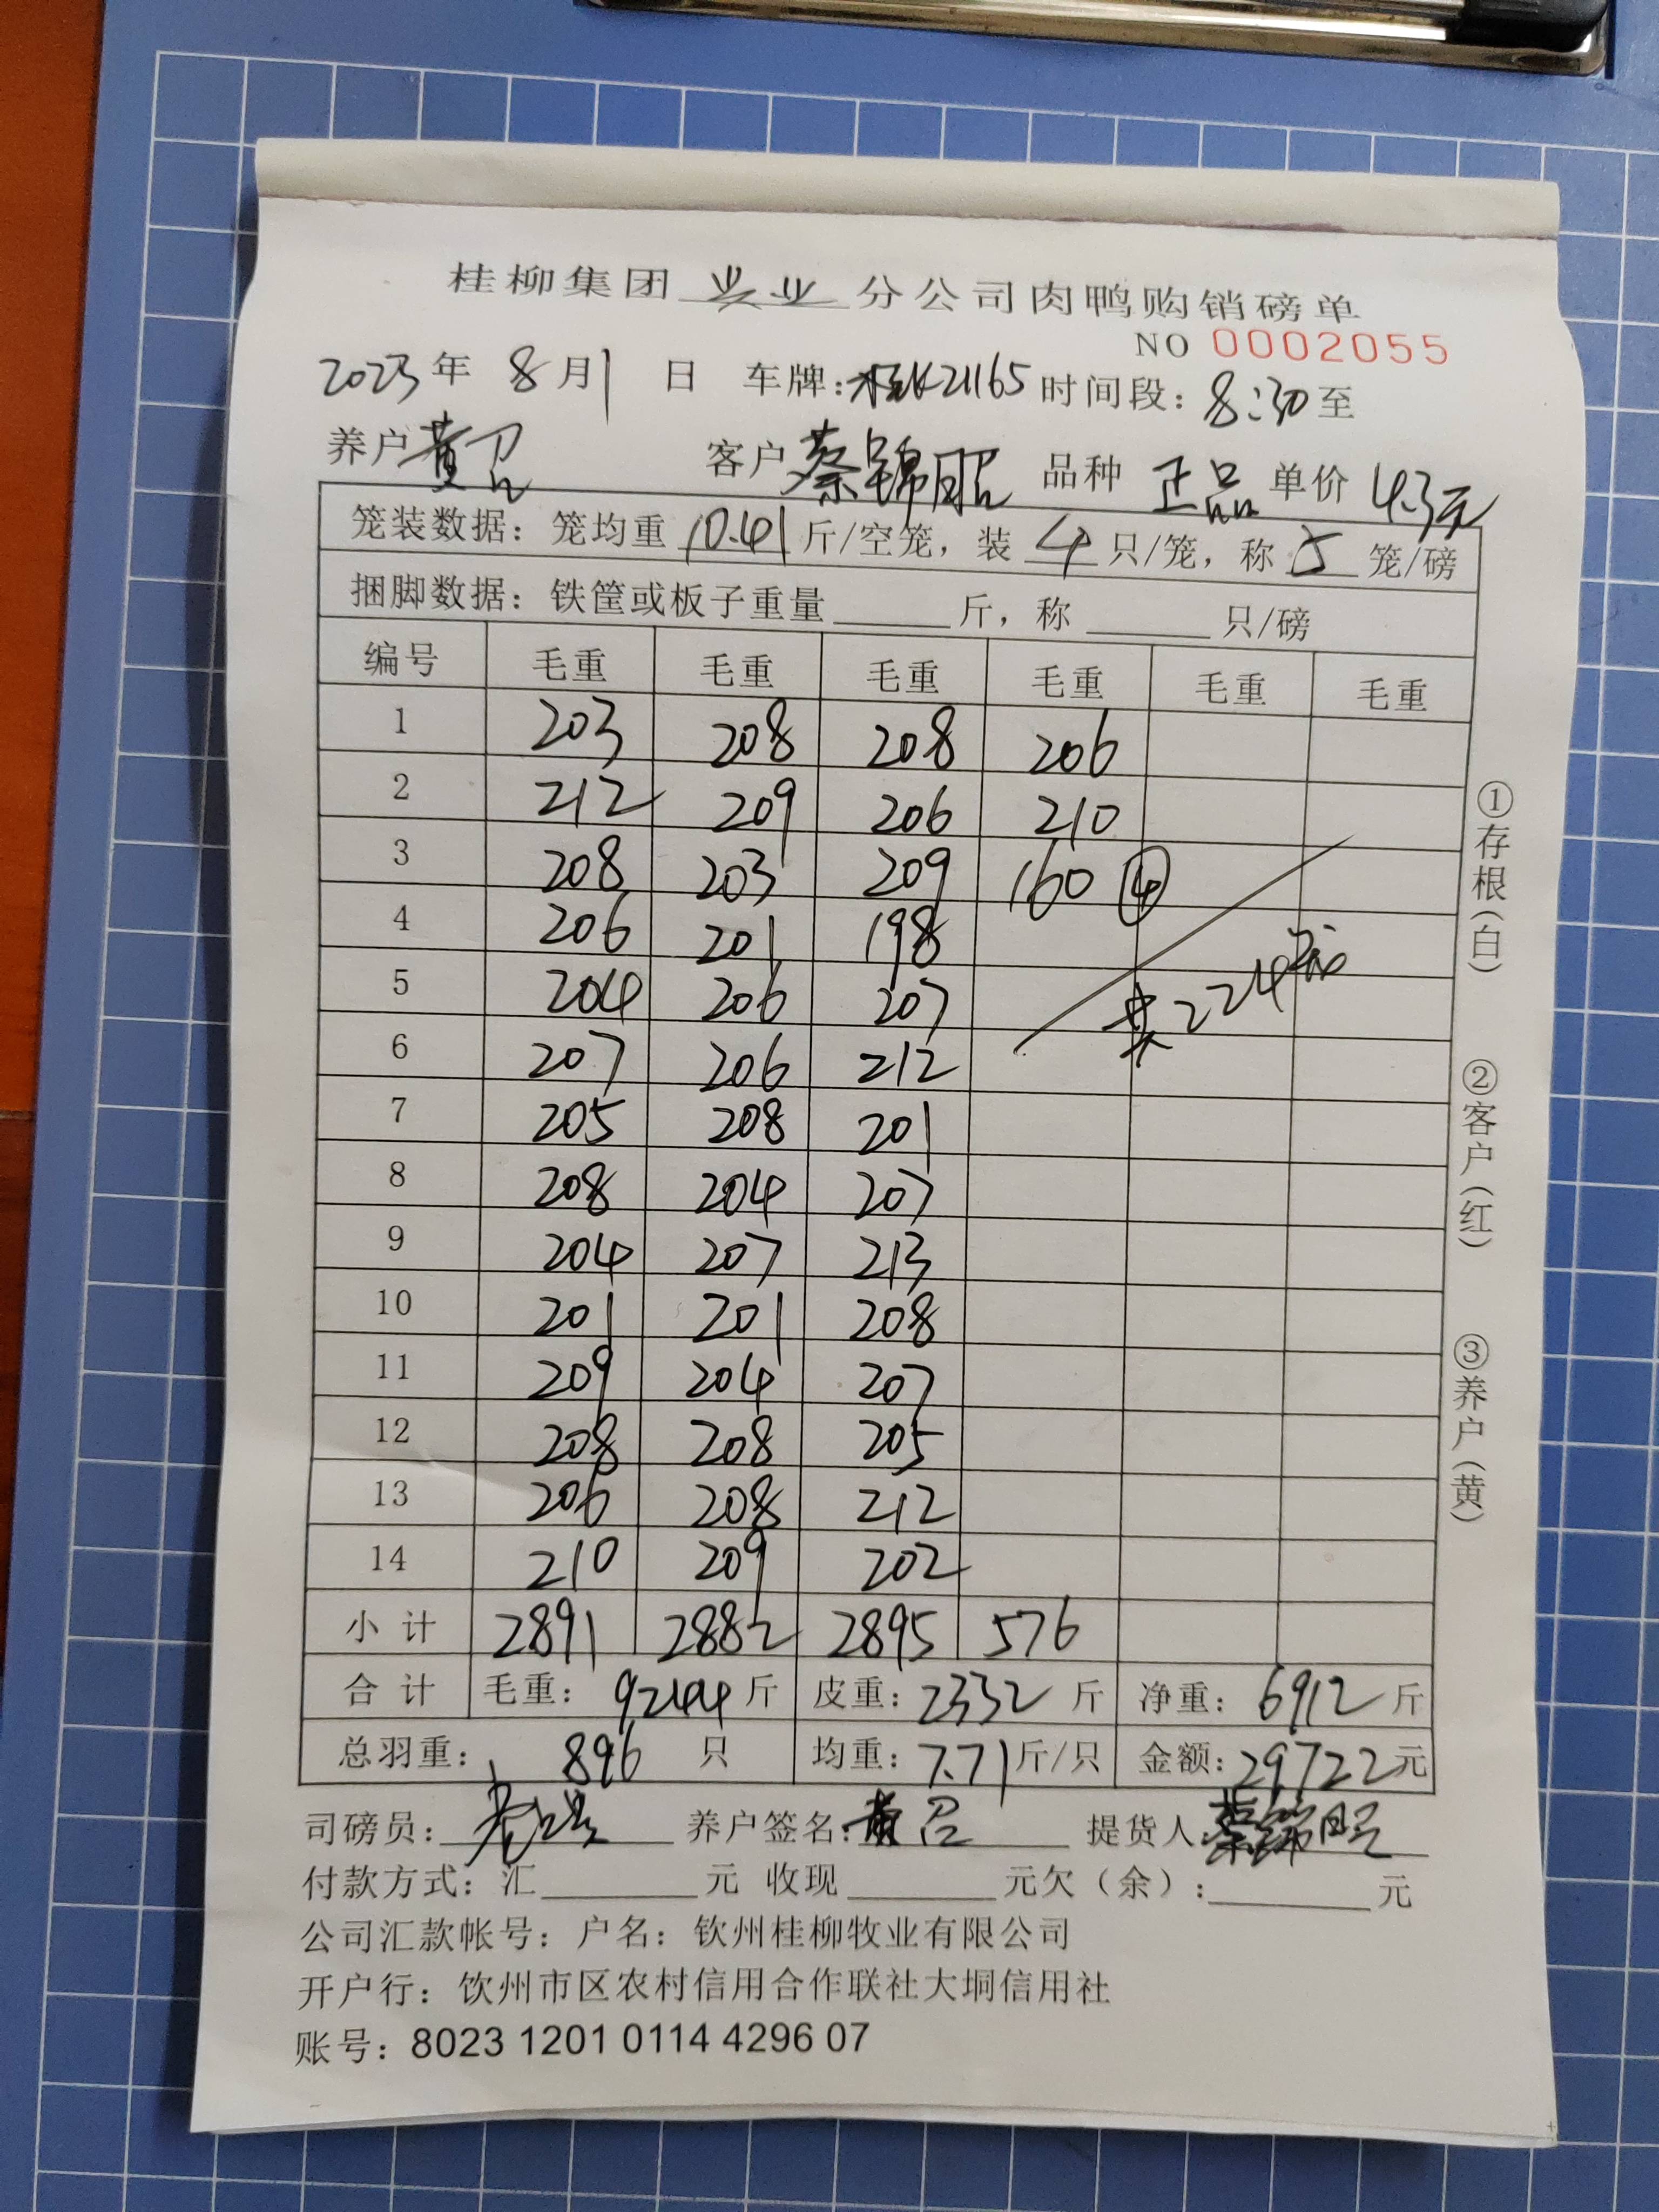 桂柳集团 兴业 分公司肉鸭购销磅单
NO 0002055
2023 年 8 月 1 日 车牌:桂K21165 时间段: 8:30 至
养户 黄召 客户 蔡锦昭 品种 正品 单价 4.3元
笼装数据: 笼均重 10.41 斤/空笼, 装 4 只/笼, 称 5 笼/磅
捆脚数据: 铁筐或板子重量 斤, 称 只/磅
编号 毛重 毛重 毛重 毛重 毛重 毛重
1 203 208 208 206
2 212 209 206 210
3 208 203 209 160 ④
4 206 201 198
5 204 206 207 共224笼
6 207 206 212
7 205 208 201
8 208 204 207
9 204 207 213
10 201 201 208
11 209 204 207
12 208 208 205
13 206 208 212
14 210 209 202
小 计 2891 2882 2895 576
合 计 毛重: 9244 斤 皮重: 2332 斤 净重: 6912 斤
总羽重: 896 只 均重: 7.71 斤/只 金额: 29722 元
司磅员: 养户签名: 黄召 提货人: 蔡锦昭
付款方式: 汇 元 收现 元欠(余): 元
公司汇款帐号: 户名: 钦州桂柳牧业有限公司
开户行: 钦州市区农村信用合作联社大垌信用社
账号: 8023 1201 0114 4296 07
①存根(白)
②客户(红)
③养户(黄)